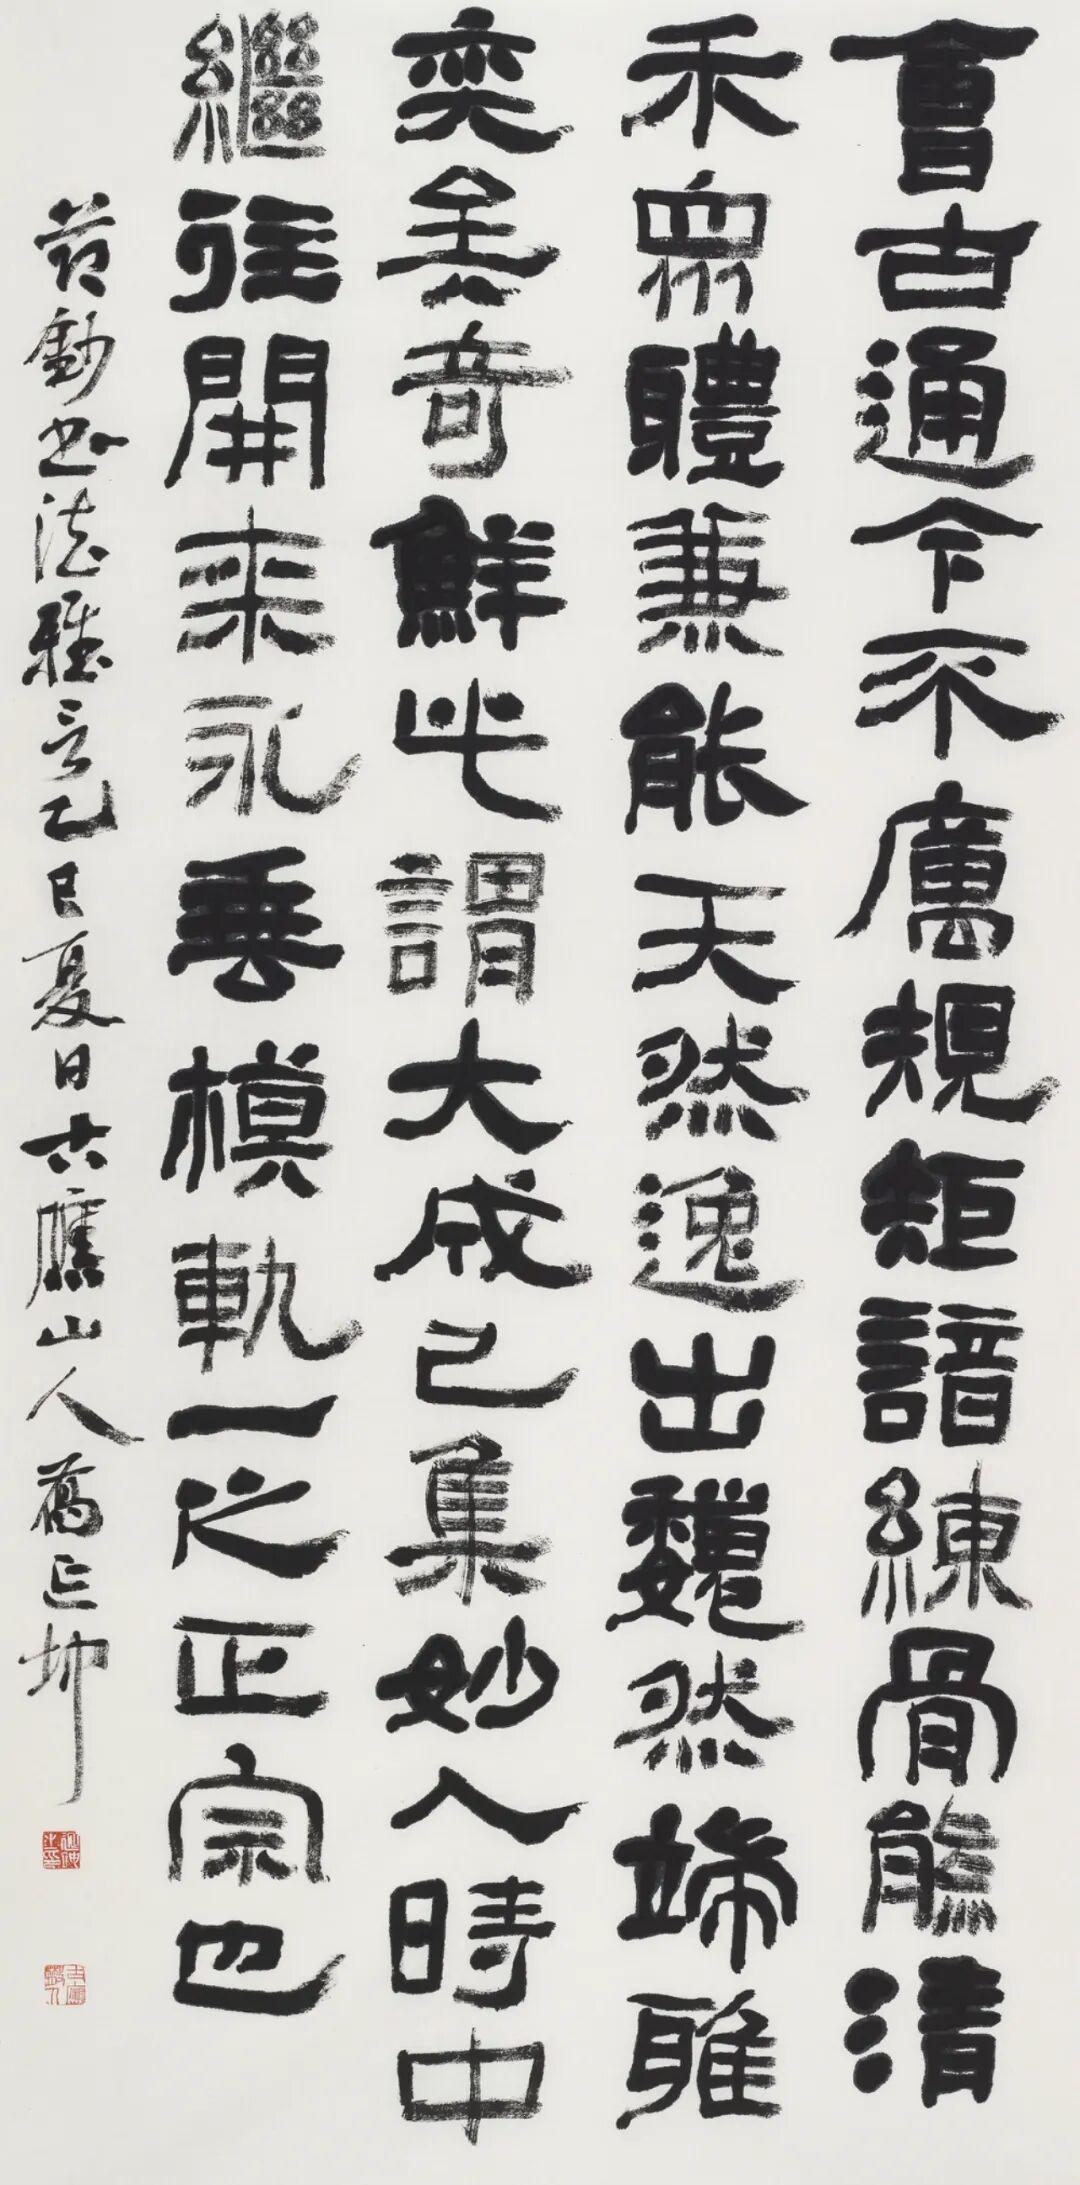 會古通今不厲規矩諳練骨態清
禾眾體兼能天然逸出魏然端雅
奕矣奇鮮此謂大成已集妙入時中
繼往開來永垂模軌一之正宗也
節鈔書法雅言乙巳夏日古山人